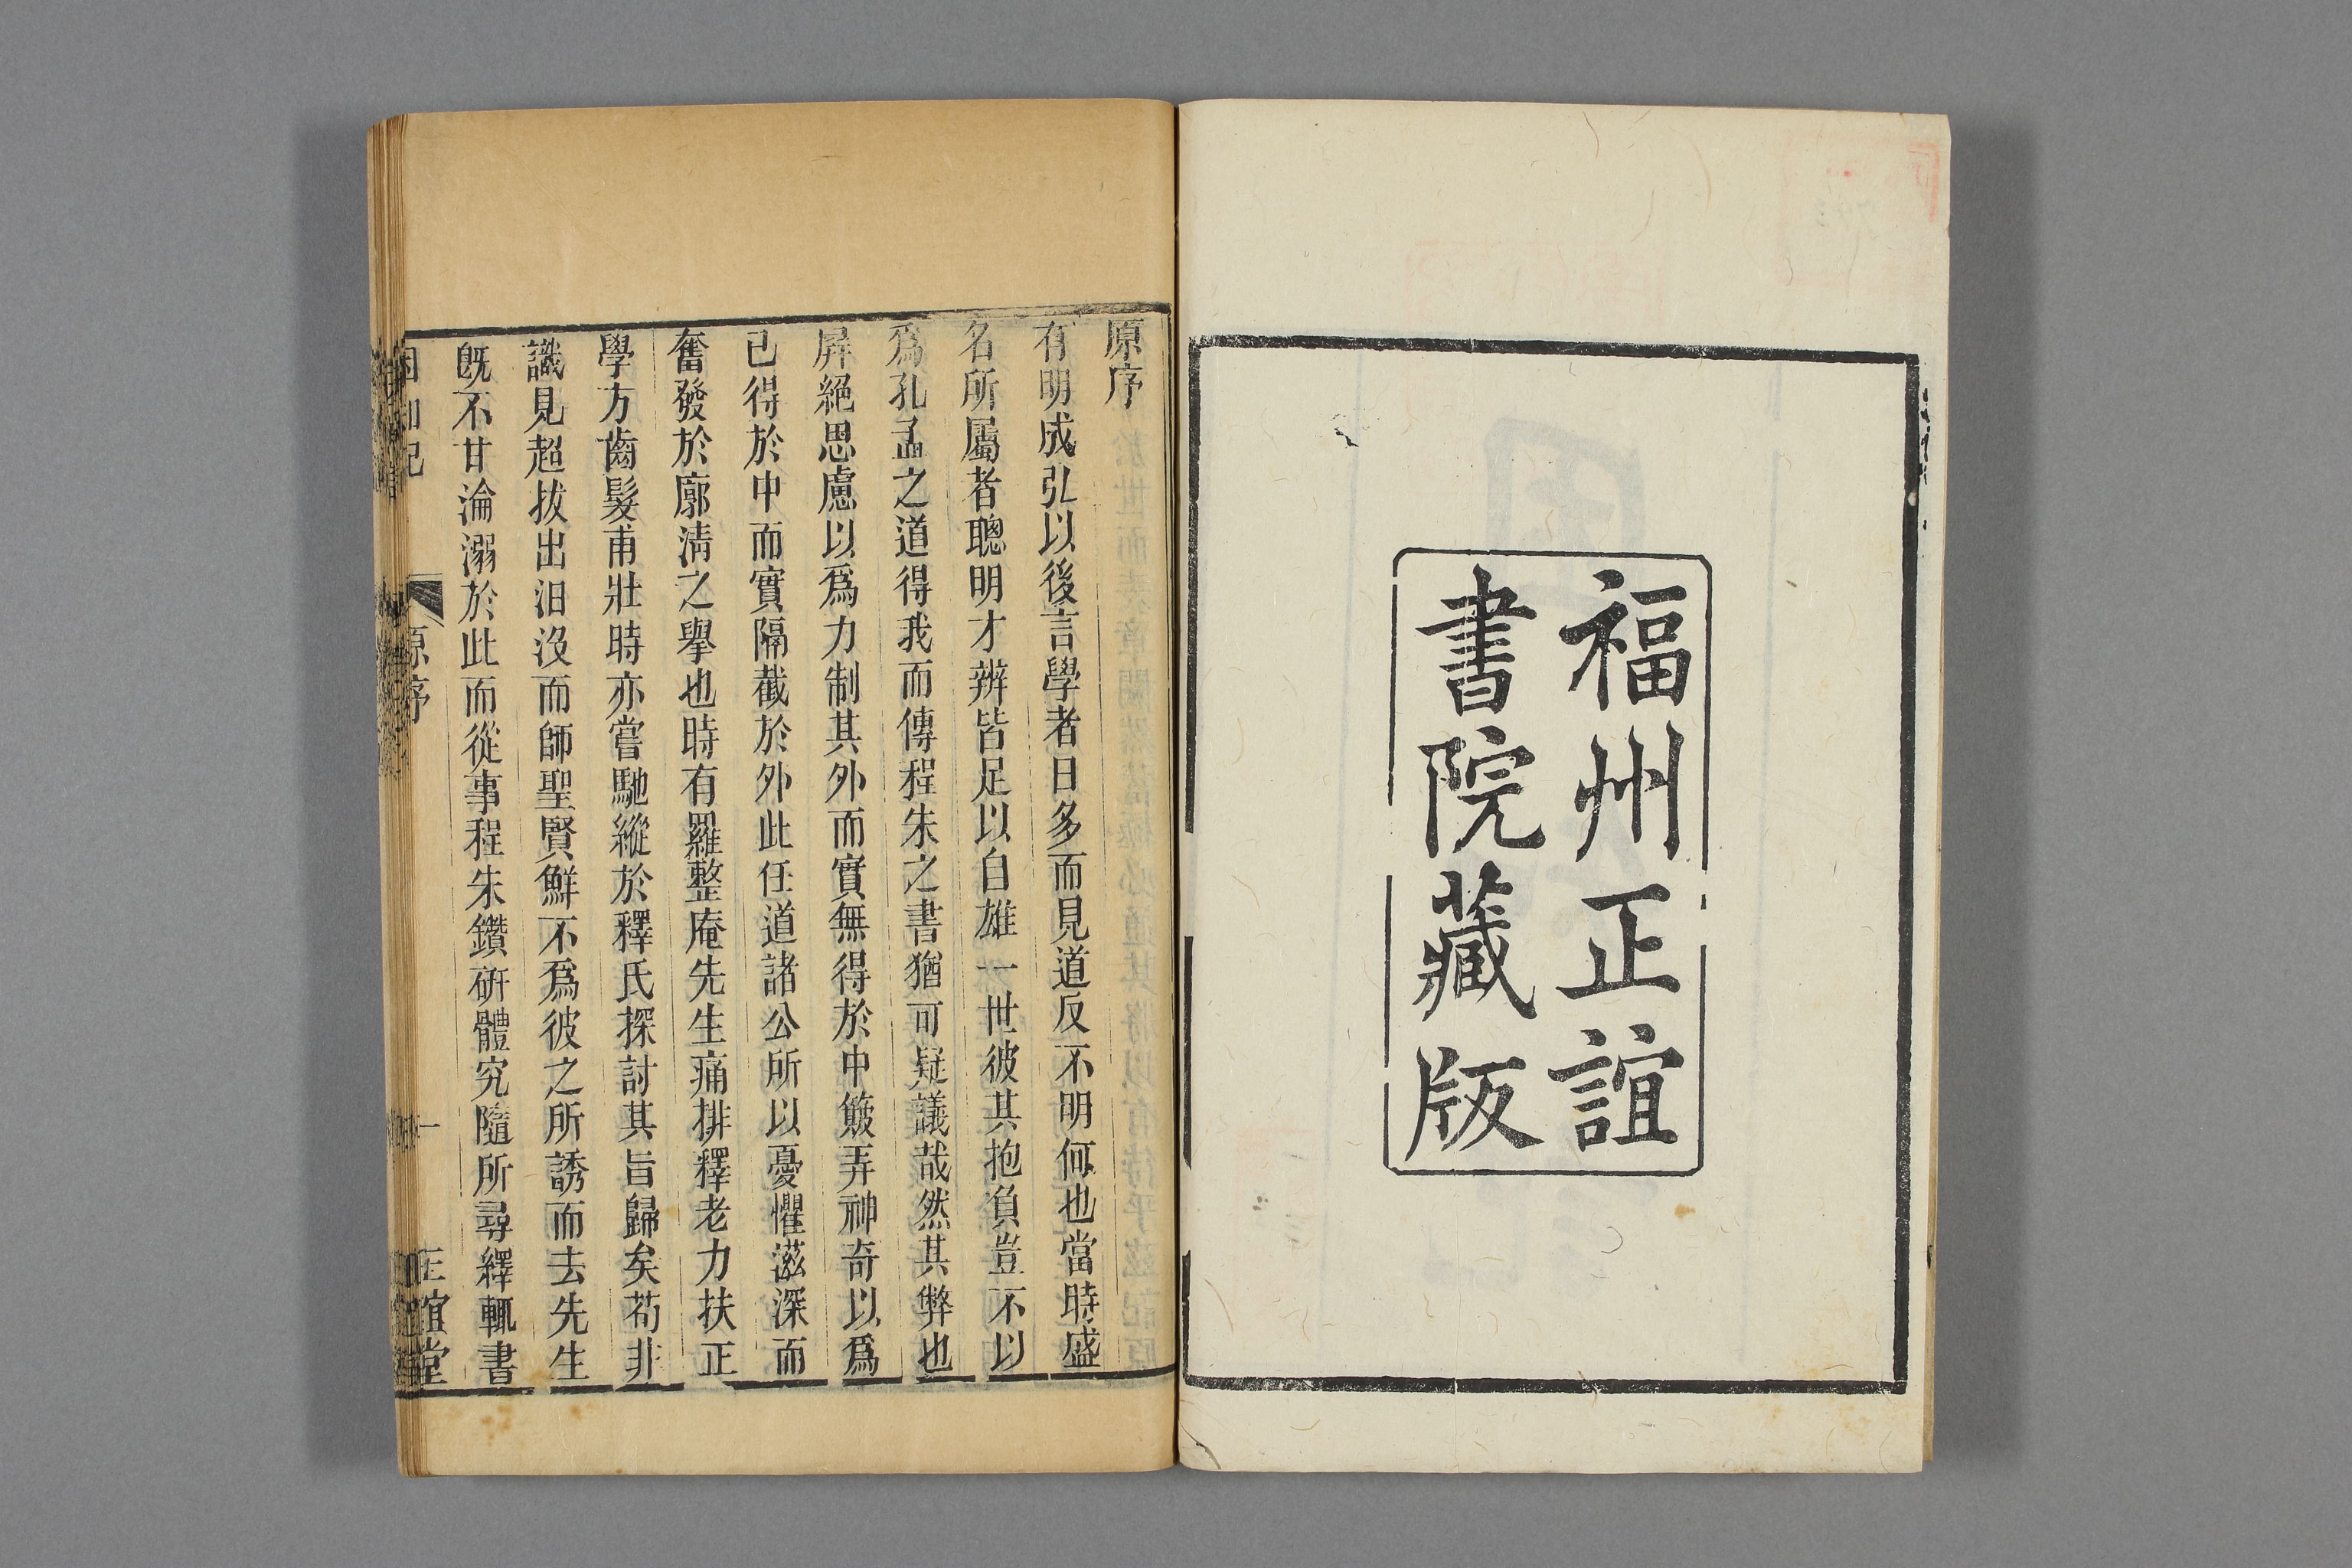 福州正誼
書院藏版
原序
有明成弘以後言學者日多而見道反不明何也當時盛
名所屬者聰明才辨皆足以自雄一世彼其抱負豈不以
爲孔孟之道得我而傳程朱之書猶可疑議哉然其弊也
屏絕思慮以爲力制其外而實無得於中簸弄神奇以爲
已得於中而實隔截於外此任道諸公所以憂懼滋深而
奮發於廓清之舉也時有羅整庵先生痛排釋老力扶正
學方齒髮甫壯時亦嘗馳縱於釋氏探討其旨歸矣苟非
識見超拔出汨沒而師聖賢鮮不爲彼之所誘而去先生
既不甘淪溺於此而從事程朱鑽研體究隨所尋繹輒書
困知記
原序
一
正誼堂